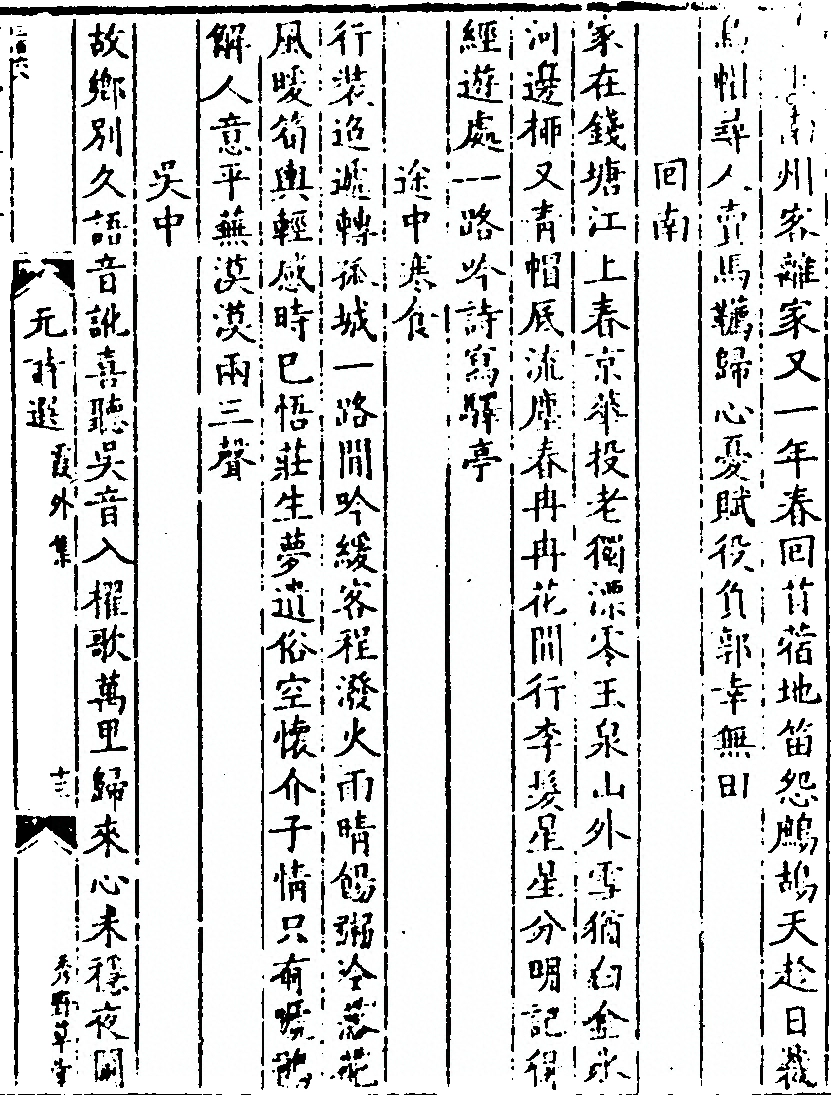 州客離家又一年春回苜蓿地笛怨鷓鴣天趁日裁
烏帽尋人賣馬韉歸心憂賦役負郭幸無田
回南
家在錢塘江上春京華投老獨漂零玉泉山外雪猶白金水
河邊栁又青帽底流塵春冉冉花間行李髮星星分明記得
經遊處一一路吟詩寫驛亭
途中寒食
行裝迢遞轉孤城一路閒吟緩客程潑火雨晴餳粥冷落花
風暖筍輿輕感時已悟莊生夢遺俗空懷介子情只有曉鶯
解人意平蕪漠漠兩三聲
吳中
故鄉別久語音訛喜聽吳音入櫂歌萬里歸來心未穩夜闌
元詩選
霞外集
十三
秀野草堂